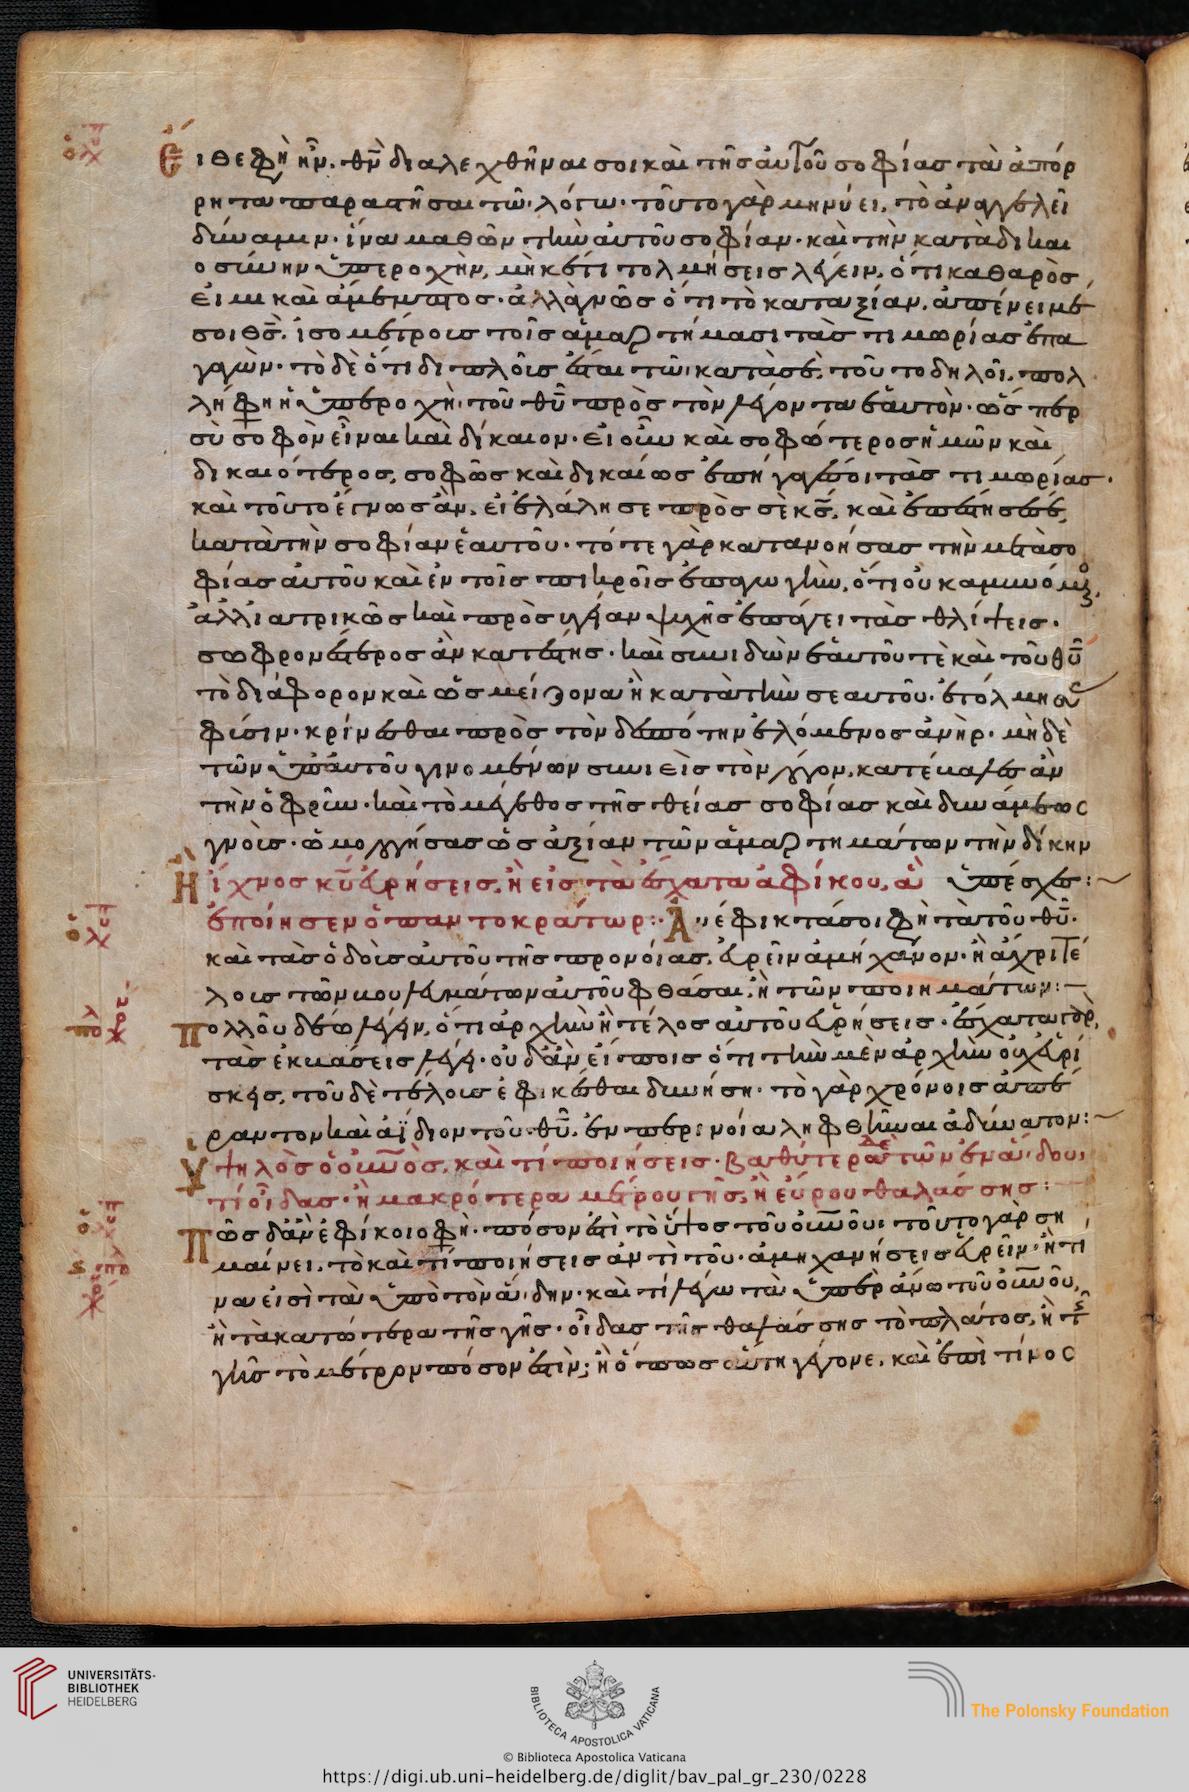 Εἴθε φὴ ἦν. θν̄ διαλεχθῆναι σοι καὶ τῆς αὐτοῦ σοφίας τὰ ἀπόρ
ρητα παραστῆσαι τῶ λόγω· τοῦτο γὰρ μηνύει, τὸ ἀναγγελεῖ
δύναμιν· ἵνα μαθὼν τὴν αὐτοῦ σοφίαν· καὶ τὴν κατὰ δικαι
οσύνην ὑπεροχὴν, μὴκέτι τολμήσεις λέγειν, ὅτι καθαρὸς
εἰμι καὶ ἄμεμπτος· ἀλλὰ γνῶς ὅτι τὸ καταξίαν, ἀπένειμέ
σοι θς̄. ἰσομέτροις τοῖς ἁμαρτήμασι τὰς τιμωρίας ἐπα
γαγών· τὸ δὲ ὅτι διπλοῖς ἔσται τῶ κατὰ σέ, τοῦτο δηλοῖ. πολ
λή φη ἡ ὑπεροχὴ τοῦ θῡ πρὸς τὸν λέγοντα ἑαυτὸν· ὥσπερ
σὺ σοφὸν εἶναι καὶ δίκαιον· εἰ οὖν καὶ σοφώτερος ἡμῶν καὶ
δικαιότερος, σοφῶς καὶ δικαίως ἐπήγαγέ σοι τὰς τιμωρίας·
καὶ τοῦτο ἔγνως ἂν, εἰ ἐλάλησε πρὸς σὲ κς̄, καὶ ἐπέστησέ σε,
κατὰ τὴν σοφίαν ἑαυτοῦ· τότε γὰρ κατανοήσας τὴν μετὰ σο
φίας αὐτοῦ καὶ ἐν τοῖς πικροῖς ἐπαγωγὴν, ὅτι οὐκ ἀμυνόμενος,
ἀλλ' ἰατρικῶς καὶ πρὸς ὑγείαν ψυχῆς ἐπάγει τὰς θλίψεις·
σωφρονέστερος ἂν κατέστης· καὶ συνιδὼν ἑαυτοῦ τὲ καὶ τοῦ θῡ
τὸ διάφορον καὶ ὡς μείζονα ἢ κατὰ τὴν σεαυτοῦ. ἐτόλμησας
φύσιν· κρίνεσθαι πρὸς τὸν δεσπότην ἑλόμενος ἀνὴρ· μὴδὲ
τῶν ὑπ' αὐτοῦ γινομένων συνιεὶς τὸν λόγον, κατέκλασας ἂν
τὴν ὀφρῦν· καὶ τὸ μέγεθος τῆς θείας σοφίας καὶ δυνάμεως
γνοὺς· ὡμολόγησας ὡς ἀξίαν τῶν ἁμαρτημάτων τὴν δίκην
ὑπέσχες:
Ἢ ἴχνος κῡ εὑρήσεις, ἢ εἰς τὰ ἔσχατα ἀφίκου, ἃ
ἐποίησεν ὁ παντοκράτωρ: Ἀνέφικτά σοι φη τὰ τοῦ θῡ.
καὶ τὰς ὁδοὺς αὐτοῦ τῆς προνοίας, εὑρεῖν ἀμήχανον· ἢ ἄχρι τέ
λους τῶν κουλευμάτων αὐτοῦ φθάσαι, ἢ τῶν ποιημάτων:
Πολλοῦ δέω λέγειν, ὅτι ἀρχὴν ἢ τέλος αὐτοῦ εὑρήσεις· ἔσχατα γὰρ,
τὰς ἐκβάσεις λέγει· οὐδ' ἂν εἴποις ὅτι τὴν μὲν ἀρχὴν οὐχ εὑρί
σκεις, τοῦ δὲ τέλους ἐφικέσθαι δυνήση· τὸ γὰρ χρόνοις ἀπέ
ραντον καὶ ἀΐδιον τοῦ θῡ. ἐν περινοία ληφθῆναι ἀδύνατον:
Ὑψηλὸς ὁ οὐνος, καὶ τί ποιήσεις· βαθύτερα δὲ τῶν ἐν ἅδου,
τί οἶδας· ἢ μακρότερα μέτρου γῆς, ἢ εὔρου θαλάσσης:
Πῶς δ' ἂν ἐφίκοιο φη. πόσον ἐστὶ τὸ ὕψος τοῦ οὐνοῦ· τοῦτο γὰρ ση
μαίνει, τὸ καὶ τί ποιήσεις ἀντὶ τοῦ· ἀμηχανήσεις εὑρεῖν· ἢ τί
να εἰσὶ τὰ ὑπὸ τὸν ἅδην· καὶ τί λέγω τὰ ὑπὲρ ἄνω τοῦ οὐνοῦ,
ἢ τὰ κατώτερα τῆς γῆς· οἶδας τῆς θαλάσσης τὸ πλάτος, ἢ τῆς
γῆς τὸ μέτρον πόσον ἐστὶν; ἢ ὅπως αὕτη γέγονε, καὶ ἐπὶ τίνος
UNIVERSITÄTS-
BIBLIOTHEK
HEIDELBERG
BIBLIOTECA APOSTOLICA VATICANA
© Biblioteca Apostolica Vaticana
The Polonsky Foundation
https://digi.ub.uni-heidelberg.de/diglit/bav_pal_gr_230/0228